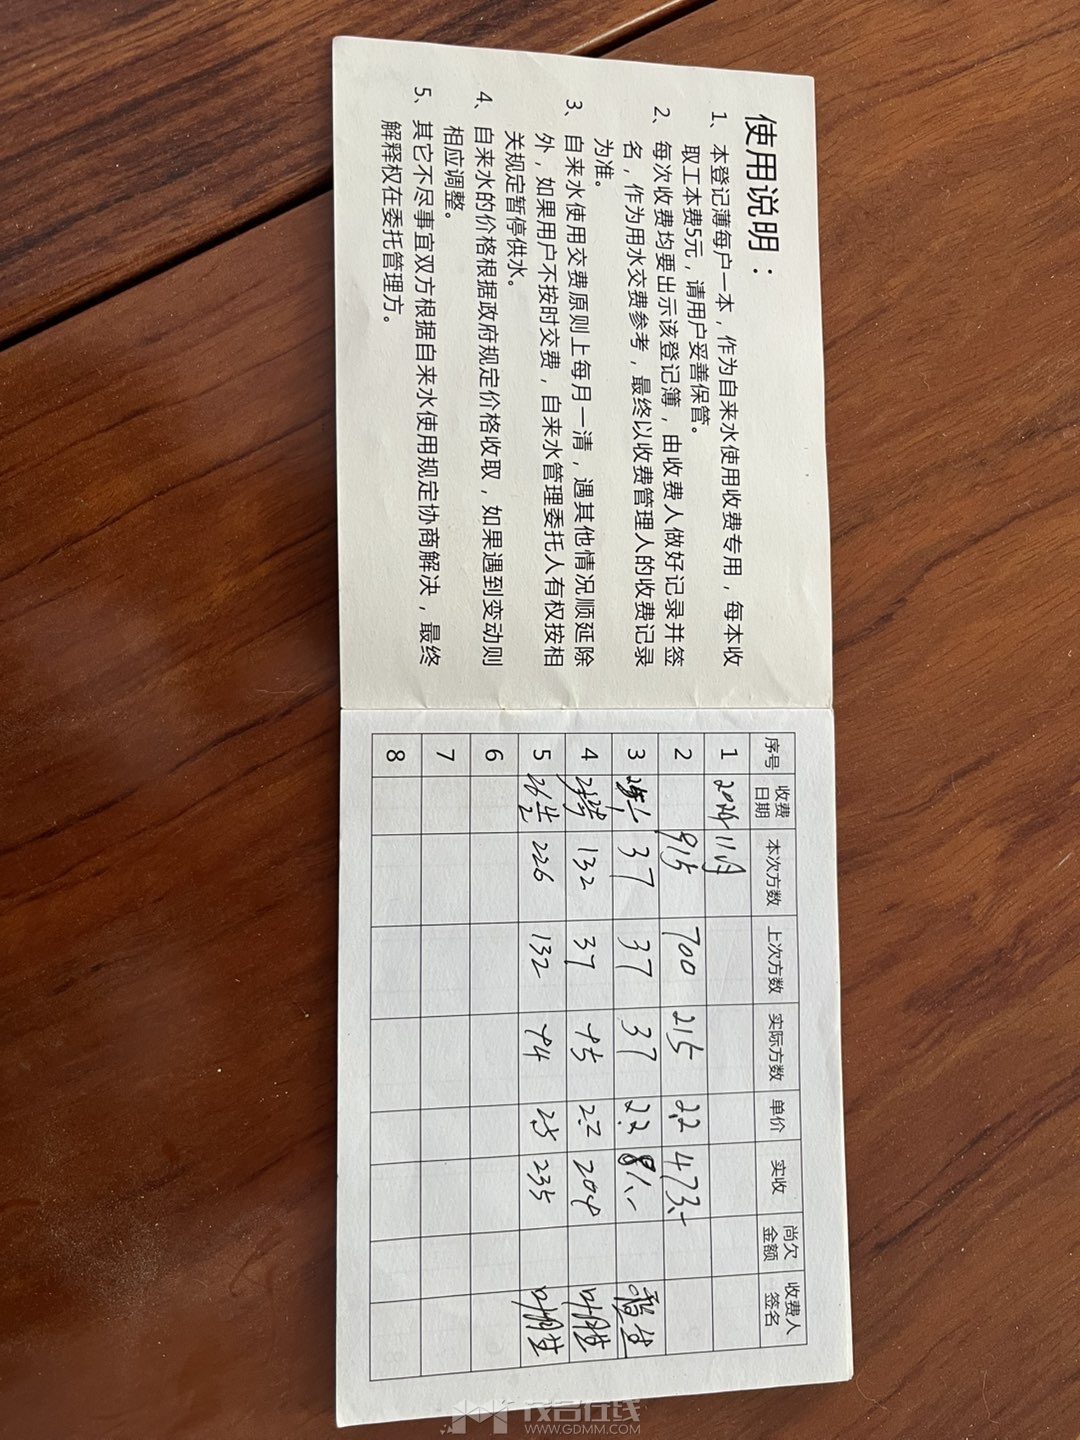 使用说明：
1、本登记薄每户一本，作为自来水使用收费专用，每本收
取工本费5元，请用户妥善保管。
2、每次收费均要出示该登记簿，由收费人做好记录并签
名，作为用水交费参考，最终以收费管理人的收费记录
为准。
3、自来水使用交费原则上每月一清，遇其他情况顺延除
外，如果用户不按时交费，自来水管理委托人有权按相
关规定暂停供水。
4、自来水的价格根据政府规定价格收取，如果遇到变动则
相应调整。
5、其它不尽事宜双方根据自来水使用规定协商解决，最终
解释权在委托管理方。
序号 收费日期 本次方数 上次方数 实际方数 单价 实收 尚欠金额 收费人签名
1 11月
2 915 700 215 2.2 473.-
3 37 37 37 2.2 81.-
4 132 37 95 2.2 209
5 226 132 94 2.5 235
6
7
8
茂名在线
WWW.GDMM.COM